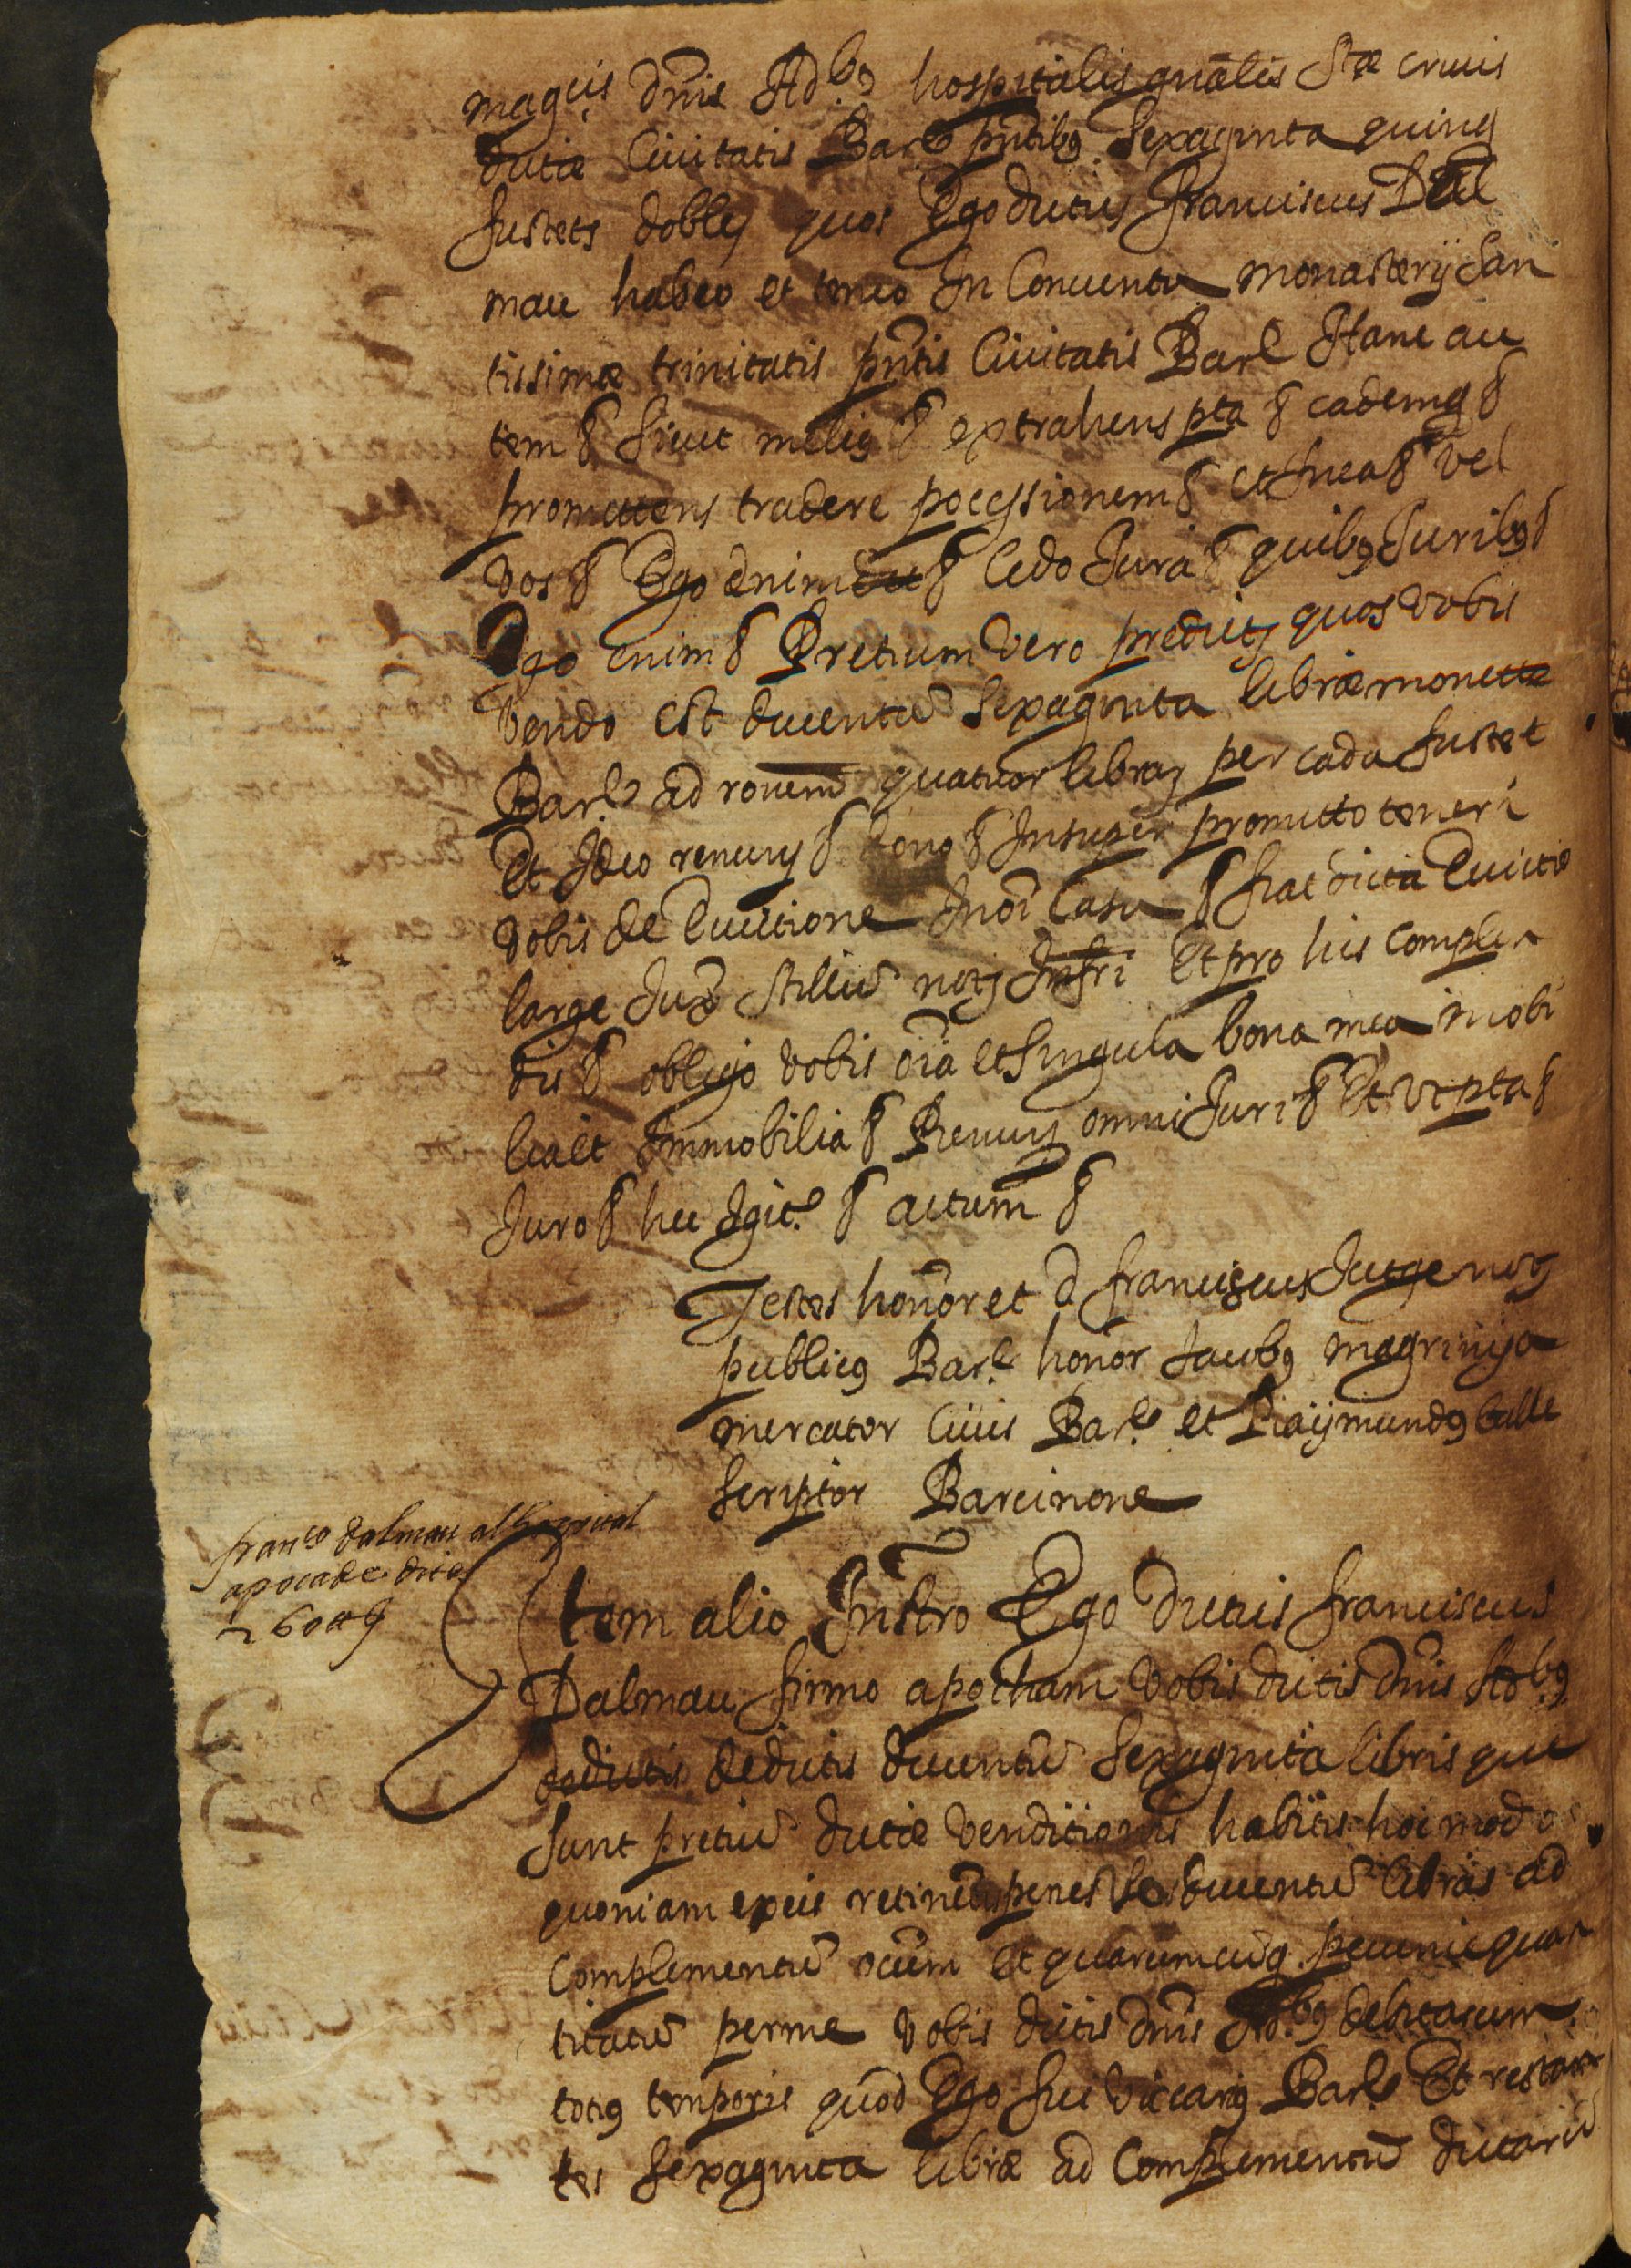 magcis dnis Ad.bs hospitalis gnalis Stæ crucis
dictæ Civitatis Barc pntibs sexaginta quinq
fustets dobles quos Ego dictus franciscus Dal
mau habeo et teneo In Conventu monasterij San
tissimæ trinitatis pntis Civitatis Barc Hanc au
tem & sicut melius & extrahens pta & eademq &
promittens tradere poessionem & et Inea & vel
vos & Ego enim & Cedo Jura & quibs Juribs &
Ego enim & Pretium vero predictus quos vobis
vendo est ducentu sexaginta libræ monetæ
Barc ad rovem quatuor libras per cada fustet
Et Ideo renuns & dono & Insuper promitto teneri
vobis de Evictione In oi Casu & fiat dicta Evictio
large Jux stillu nots Infri Et pro his complen
dis & obligo vobis oia et singula bona mea mobi
lia et Immobilia & Renuns omni Juri & Et ut pta &
Juro & hec Igit. & actum &
Testes honor et d franciscus Jutge nots
publics Barc honor Jacobs magrinya
mercator Civis Barc et Raijmunds Calle
scriptor Barcinone
franco dalmau al hospital
apoca de dites
260 ll J
Item alio Instro Ego dictus franciscus
Dalmau firmo apocham vobis dictis dnis Ad.bs
de dictis ducentu sexaginta libris que
sunt pretiu dictæ venditionis habitis hoc modo
quoniam ex eis retinetis penes vos ducentu libras ad
complementu oium et quarumcuq. pecunie quan
titatu per me vobis dictis dnis Ad.bs debitarum
totius temporis quod Ego fui vicarius Barc Et restan
tes sexaginta libræ ad Complementu dictaru